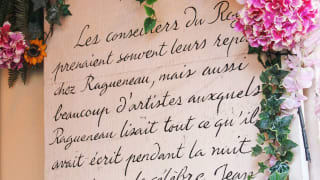 Les conseillers du
prenaient souvent leurs repa
chez Ragueneau, mais aussi
beaucoup d'artistes auxquels
Ragueneau lisait tout ce qu'il
avait écrit pendant la nuit
célèbre Jean